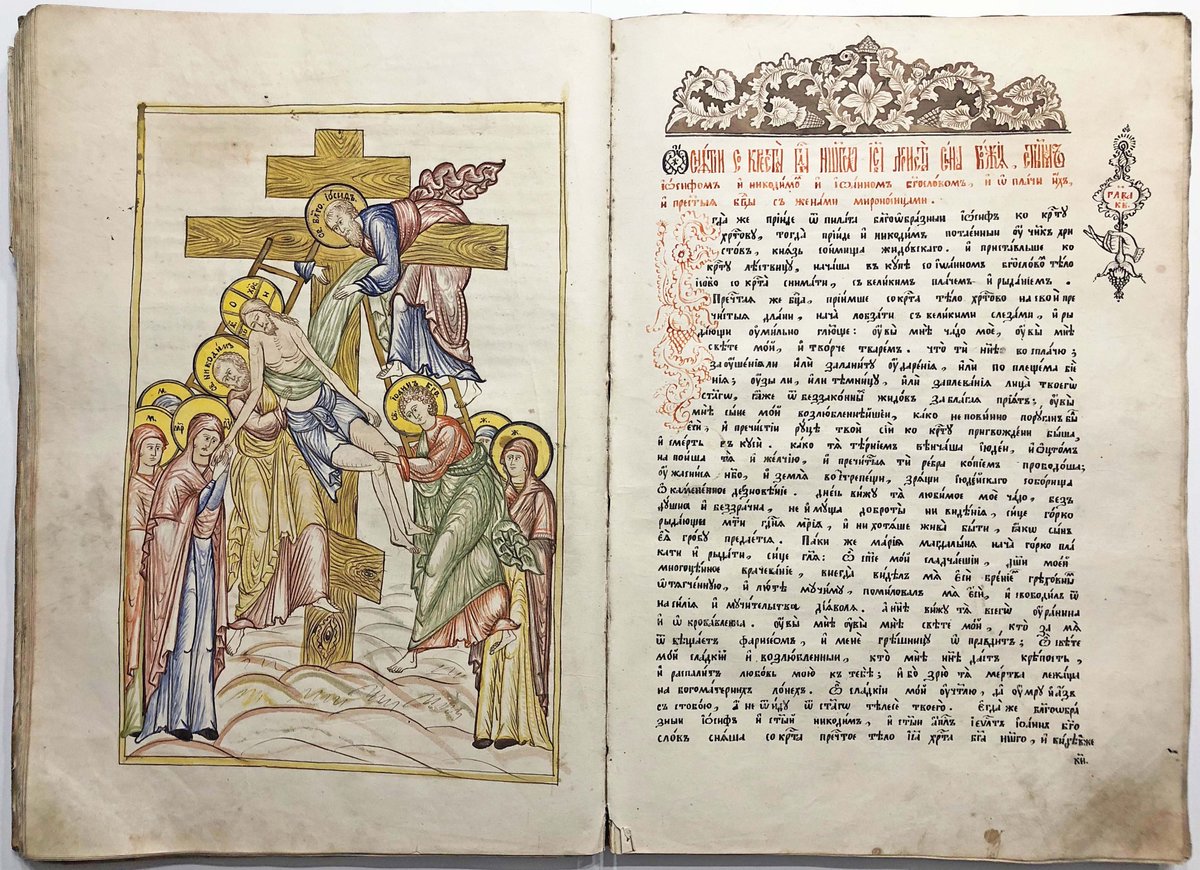 СВ. БЛГО. ІОСИФЪ
О Н
СВ. НИКОДИМЪ
М
М
СВ. ІОАННЪ БГО
Ж
Ж
Ѡ снѧтїи со крестa гдⷭ҇а нашегѡ їс҃а христа сына божїѧ,
їѡсифомъ и никодимоⷨ и їѡанномъ бг҃ословомъ, и ѡ плачи ихъ,
и прест҃ыѧ бц҃ы с женами мироносицами.
гла́ва
кв.
Егда же прїиде ѿ пилата бл҃гоѡбразный їѡсифъ ко крⷭ҇ту
христову, тогда прїиде и никодим потаенный ᲂу҆ченикъ хри
стовъ, князь сонмища жидовскаго. и приставльше ко
крⷭ҇ту лѣствицу, начаша вкупѣ со їѡанномъ бг҃ословоⷨ тѣло
їсово со крⷭ҇та снимати, съ великимъ плачемъ и рыданїемъ.
Преч҃таѧ же бц҃а, прїимше со крⷭ҇та тѣло христово на свои пре
чистыѧ длани, нача лобзати съ великими слезами, и ры
дающи ᲂу҆мильно гл҃юще: ᲂу҆вы мнѣ чадо мое, ᲂу҆вы мнѣ
свѣте мой, и творче тваремъ. что ти нн҃ѣ восплачю;
заᲂу҆шенїѧ ли или заланиту ᲂу҆даренїѧ, или по плещема бї
нїѧ; ᲂу҆зы ли, или темницу, или заплеванїѧ лица твоегѡ
ст҃агѡ, ꙗже ѿ беззаконныⷯ жидовъ заблага прїѧтъ; ᲂу҆вы
мнѣ сыне мой возлюбленнѣйшїй, како неповинно поруганъ бы
еси, и пречистїи руцѣ твои сїи ко крⷭ҇ту пригвождени быша,
и смерть вкуси. како тѧ тернїемъ вѣнчаша їюдеи, и ѡцтомъ
напоиша тѧ и желчїю, и преч҃тыѧ ти ребра копїемъ прободоша;
ᲂу҆жасниcѧ нб҃о, и земля вострепещи, зрѧщи їюдейскаго соборища
ѡкамененное дерзновенїе. днесь вижу тѧ любимое мое чадо, безъ
душна и беззрачна, не имуща доброты ни видѣнїѧ, сице горко
рыдающи мт҃и гдⷭ҇нѧ мр҃їѧ, и не хотѧше жива быти, ꙗкѡ сынъ
еѧ гробу предаетсѧ. Паки же марїѧ магдалыни нача горко пла
кати и рыдати, сице гл҃ѧ: Ѽ сп҃се мой сладчайшїй, дш҃и моей
многоцѣнное врачеванїе, внегда видѣлъ мѧ еси бремѧ грѣховныⷨ
ѡтѧгченную, и лютѣ мучиму, помиловалъ мѧ еси, и свободилъ ѿ
насилїѧ и мучительства дїавола. А нн҃ѣ вижу тѧ всегѡ ᲂу҆ранена
и ѡкровавлена. ᲂу҆вы мнѣ ᲂу҆вы мнѣ свѣте мой, кто за мѧ
ѿвѣщаетъ фарисеомъ, и мене грѣшницу ѡправдитъ; Ѽ свѣте
мой сладкїй и возлюбленный, кто мнѣ нн҃ѣ дастъ крѣпость,
и распалитъ любовь мою къ тебѣ; ибо зрю тѧ мертва лежаща
на богоматернихъ лонехъ. Ѽ сладкїи мой ᲂу҆чт҃лю, да ᲂу҆мру и азъ
съ тобою, а не ѿиду ѿ ст҃агѡ тѣлесе твоего. Егда же бл҃гоѡбра
зный їѡсифъ и ст҃ый никодимъ, и ст҃ый апⷭ҇лъ їеѵⷢ҇листъ їѡаннъ бг҃о
словъ снѧша со крⷭ҇та преч҃тое тѣло їс҃а хрⷭ҇та бг҃а нашего, и видѣвже
ки.